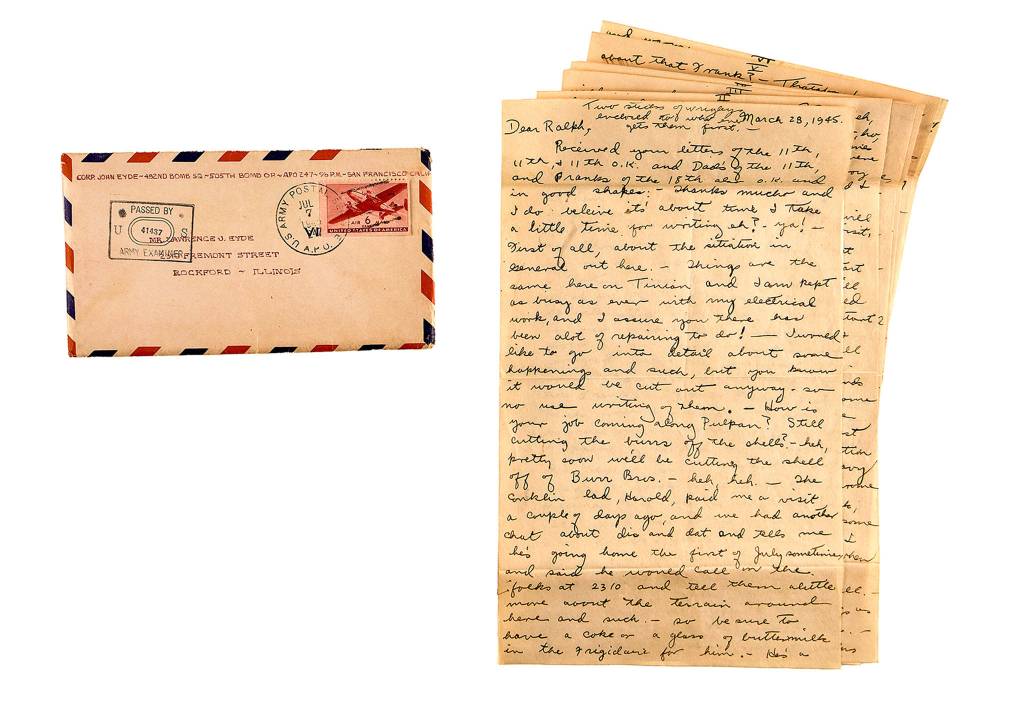 CORP. JOHN EYDE-482ND BOMB SQ-505TH BOMB GP-APO 247-% P.M.-SAN FRANCISCO CALIF
PASSED BY
U S
41437
ARMY EXAMINER
U.S. ARMY POSTAL
JUL
7
A.P.O.
AIR 6 MAIL
UNITED STATES OF AMERICA
MR. LAWRENCE J. EYDE
2310 FREMONT STREET
ROCKFORD ~ ILLINOIS
VI
V
about that Frank? - Thats
III
II
Two sticks of wrigleys
enclosed to who ever
gets them first. -
March 28, 1945.
Dear Ralph,
Received your letters of the 11th,
11th, & 11th O.K. and Dad's of the 11th,
and Franks of the 18th all O.K. and
in good shape: - Thanks mucho and
I do beleive its about time I take
a little time for writing eh? - ya! -
First of all, about the sitation in
general out here. - Things are the
same here on Tinian and I am kept
as busy as ever with my electrical
work, and I assure you there has
been alot of repairing to do! - I would
like to go into detail about some
happenings and such, but you know
it would be cut out anyway - so
no use writing of them. - How is
your job coming along Pulpan? Still
cutting the burrs off the shells? - heh,
pretty soon we'll be cutting the shell
off of Burr Bros. - heh, heh. - The
Conklin lad, Harold, paid me a visit
a couple of days ago, and we had another
chat about dis and dat and tells me
he's going home the first of July sometime, then
and said he would call on the
folks at 2310 and tell them alittle
more about the terrain around
here and such. - so be sure to
have a coke or a glass of buttermilk
in the Frigidaire for him. - He's a